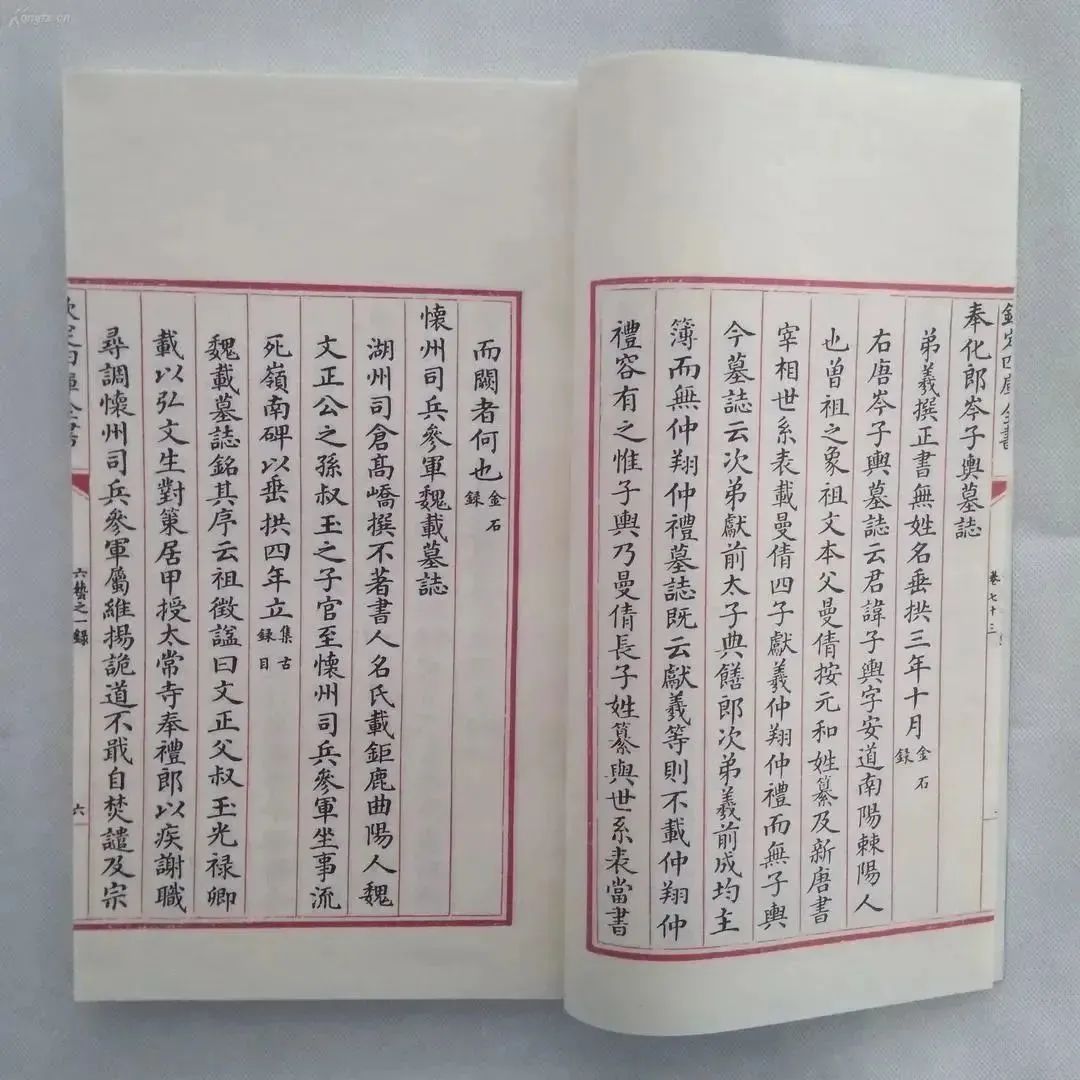 欽定四庫全書
卷七十三
奉化郎岑子輿墓誌
弟羲撰正書無姓名垂拱三年十月金石
録
右唐岑子輿墓誌云君諱子輿字安道南陽棘陽人
也曾祖之象祖文本父曼倩按元和姓纂及新唐書
宰相世系表載曼倩四子獻羲仲翔仲禮而無子輿
今墓誌云次弟獻前太子典饍郎次弟羲前成均主
簿而無仲翔仲禮墓誌既云獻羲等則不載仲翔仲
禮容有之惟子輿乃曼倩長子姓纂與世系表當書
而闕者何也金石
録
懷州司兵參軍魏載墓誌
湖州司倉髙嶠撰不著書人名氏載鉅鹿曲陽人魏
文正公之孫叔玉之子官至懷州司兵參軍坐事流
死嶺南碑以垂拱四年立集古
録目
魏載墓誌銘其序云祖徵諡曰文正父叔玉光禄卿
載以弘文生對策居甲授太常寺奉禮郎以疾謝職
尋調懷州司兵參軍屬維揚詭道不戢自焚譴及宗
欽定四庫全書
六藝之一録
六
Kongfz.cn